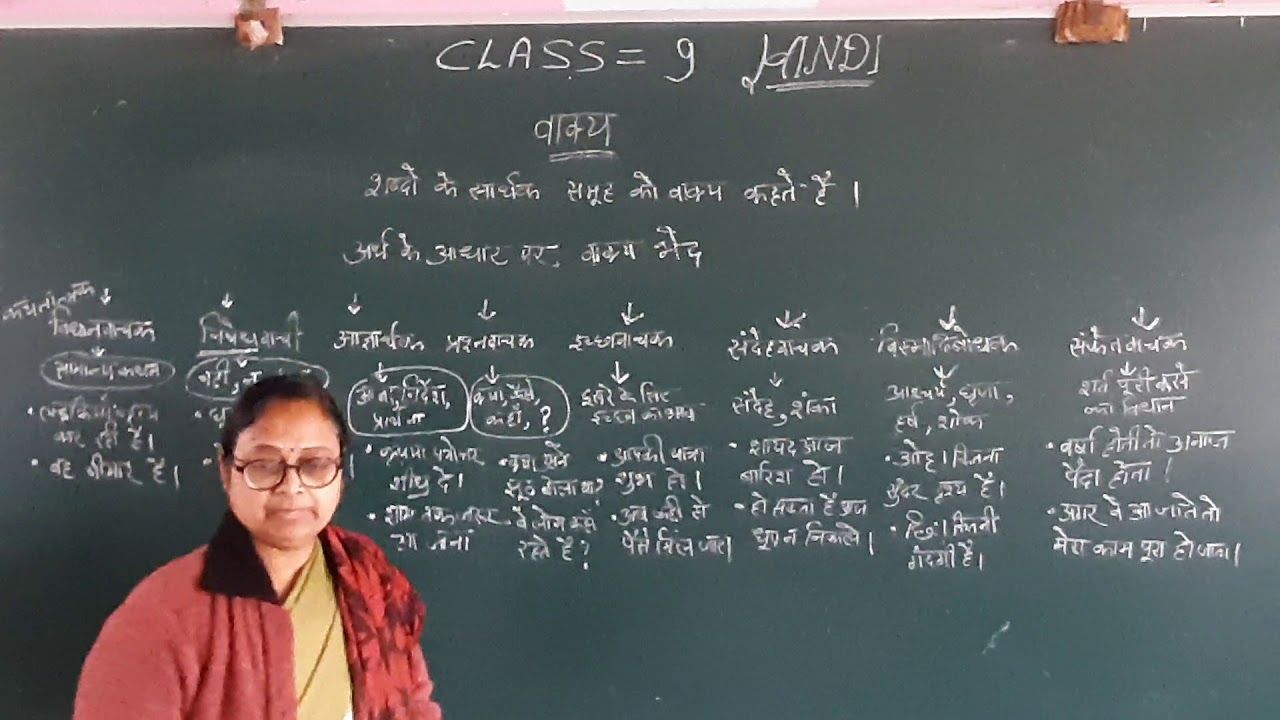 CLASS = 9 HINDI
वाक्य
शब्दों के सार्थक समूह को वाक्य कहते हैं ।
अर्थ के आधार पर, वाक्य भेद
विधानवाचक
सामान्य कथन
कर रही हैं।
• वह बीमार है।
निषेधवाची
नहीं, न
आज्ञार्थक
आज्ञा, निर्देश,
प्रार्थना
• कृपया पत्रोत्तर
शीघ्र दें।
• शाम तक जरूर
आ जाना
प्रश्नवाचक
क्या, कैसे,
कहाँ, ?
• क्या मैंने
झूठ बोला था?
• वे लोग कहाँ
रहते हैं?
इच्छावाचक
दूसरे के लिए
इच्छा का भाव
• आपकी यात्रा
शुभ हो।
• अब कहीं से
पैसे मिल जाए।
संदेहवाचक
संदेह, शंका
• शायद आज
बारिश हो।
• हो सकता है आज
धूप न निकले।
विस्मयादिबोधक
आश्चर्य, घृणा,
हर्ष, शोक
• ओह। कितना
सुंदर दृश्य है।
• छिः। कितनी
गंदगी है।
संकेतवाचक
शर्त पूरी करने
का विधान
• वर्षा होती तो अनाज
पैदा होता।
• अगर वे आ जाते तो
मेरा काम पूरा हो जाता।